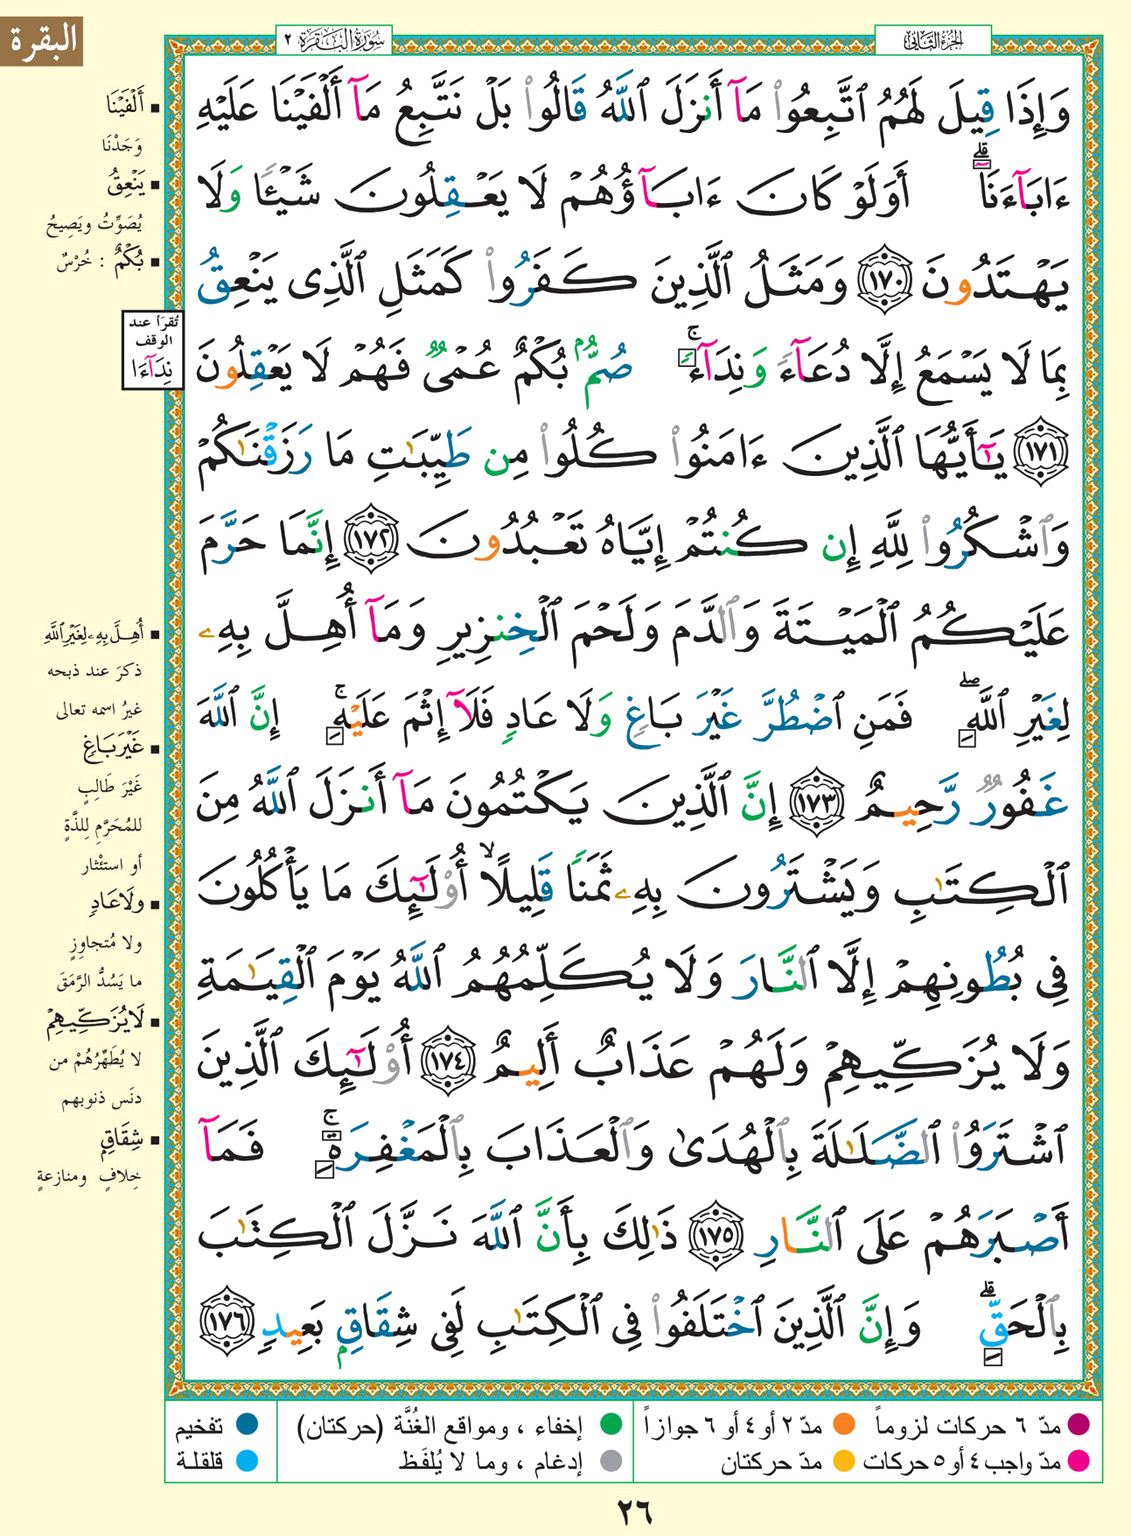 البقرة
سورة البقرة ٢
الجزء الثاني
وَإِذَا قِيلَ لَهُمُ ٱتَّبِعُوا۟ مَآ أَنزَلَ ٱللَّهُ قَالُوا۟ بَلْ نَتَّبِعُ مَآ أَلْفَيْنَا عَلَيْهِ
ءَابَآءَنَآ ۗ أَوَلَوْ كَانَ ءَابَآؤُهُمْ لَا يَعْقِلُونَ شَيْـًٔا وَلَا
يَهْتَدُونَ ١٧٠ وَمَثَلُ ٱلَّذِينَ كَفَرُوا۟ كَمَثَلِ ٱلَّذِى يَنْعِقُ
بِمَا لَا يَسْمَعُ إِلَّا دُعَآءً وَنِدَآءً ۚ صُمٌّۢ بُكْمٌ عُمْىٌ فَهُمْ لَا يَعْقِلُونَ
١٧١ يَـٰٓأَيُّهَا ٱلَّذِينَ ءَامَنُوا۟ كُلُوا۟ مِن طَيِّبَـٰتِ مَا رَزَقْنَـٰكُمْ
وَٱشْكُرُوا۟ لِلَّهِ إِن كُنتُمْ إِيَّاهُ تَعْبُدُونَ ١٧٢ إِنَّمَا حَرَّمَ
عَلَيْكُمُ ٱلْمَيْتَةَ وَٱلدَّمَ وَلَحْمَ ٱلْخِنزِيرِ وَمَآ أُهِلَّ بِهِۦ
لِغَيْرِ ٱللَّهِ ۖ فَمَنِ ٱضْطُرَّ غَيْرَ بَاغٍ وَلَا عَادٍ فَلَآ إِثْمَ عَلَيْهِ ۚ إِنَّ ٱللَّهَ
غَفُورٌ رَّحِيمٌ ١٧٣ إِنَّ ٱلَّذِينَ يَكْتُمُونَ مَآ أَنزَلَ ٱللَّهُ مِنَ
ٱلْكِتَـٰبِ وَيَشْتَرُونَ بِهِۦ ثَمَنًا قَلِيلًا ۙ أُو۟لَـٰٓئِكَ مَا يَأْكُلُونَ
فِى بُطُونِهِمْ إِلَّا ٱلنَّارَ وَلَا يُكَلِّمُهُمُ ٱللَّهُ يَوْمَ ٱلْقِيَـٰمَةِ
وَلَا يُزَكِّيهِمْ وَلَهُمْ عَذَابٌ أَلِيمٌ ١٧٤ أُو۟لَـٰٓئِكَ ٱلَّذِينَ
ٱشْتَرَوُا۟ ٱلضَّلَـٰلَةَ بِٱلْهُدَىٰ وَٱلْعَذَابَ بِٱلْمَغْفِرَةِ ۚ فَمَآ
أَصْبَرَهُمْ عَلَى ٱلنَّارِ ١٧٥ ذَٰلِكَ بِأَنَّ ٱللَّهَ نَزَّلَ ٱلْكِتَـٰبَ
بِٱلْحَقِّ ۗ وَإِنَّ ٱلَّذِينَ ٱخْتَلَفُوا۟ فِى ٱلْكِتَـٰبِ لَفِى شِقَاقٍۭ بَعِيدٍ ١٧٦
أَلْفَيْنَا
وَجَدْنَا
يَنْعِقُ
يُصَوِّتُ ويَصِيحُ
بُكْمٌ : خُرْسٌ
تُقرَأ عند
الوقف
نِدَآءَا
أُهِلَّ بِهِۦ لِغَيْرِ ٱللَّهِ
ذكرَ عند ذبحه
غيرُ اسمه تعالى
غَيْرَ بَاغٍ
غَيْرَ طَالِبٍ
للمُحَرَّمِ لِلذَّةٍ
أو استئثار
وَلَا عَادٍ
ولا مُتجاوِزٍ
ما يَسُدُّ الرَّمَقَ
لَا يُزَكِّيهِمْ
لا يُطَهِّرُهُمْ من
دنَس ذنوبهم
شِقَاقٍ
خِلافٍ ومنازعةٍ
مدّ ٦ حركات لزوماً
مدّ ٢ أو ٤ أو ٦ جوازاً
إخفاء ، ومواقع الغُنَّة (حركتان)
تفخيم
مدّ واجب ٤ أو ٥ حركات
مدّ حركتان
إدغام ، وما لا يُلفَظ
قلقلة
٢٦